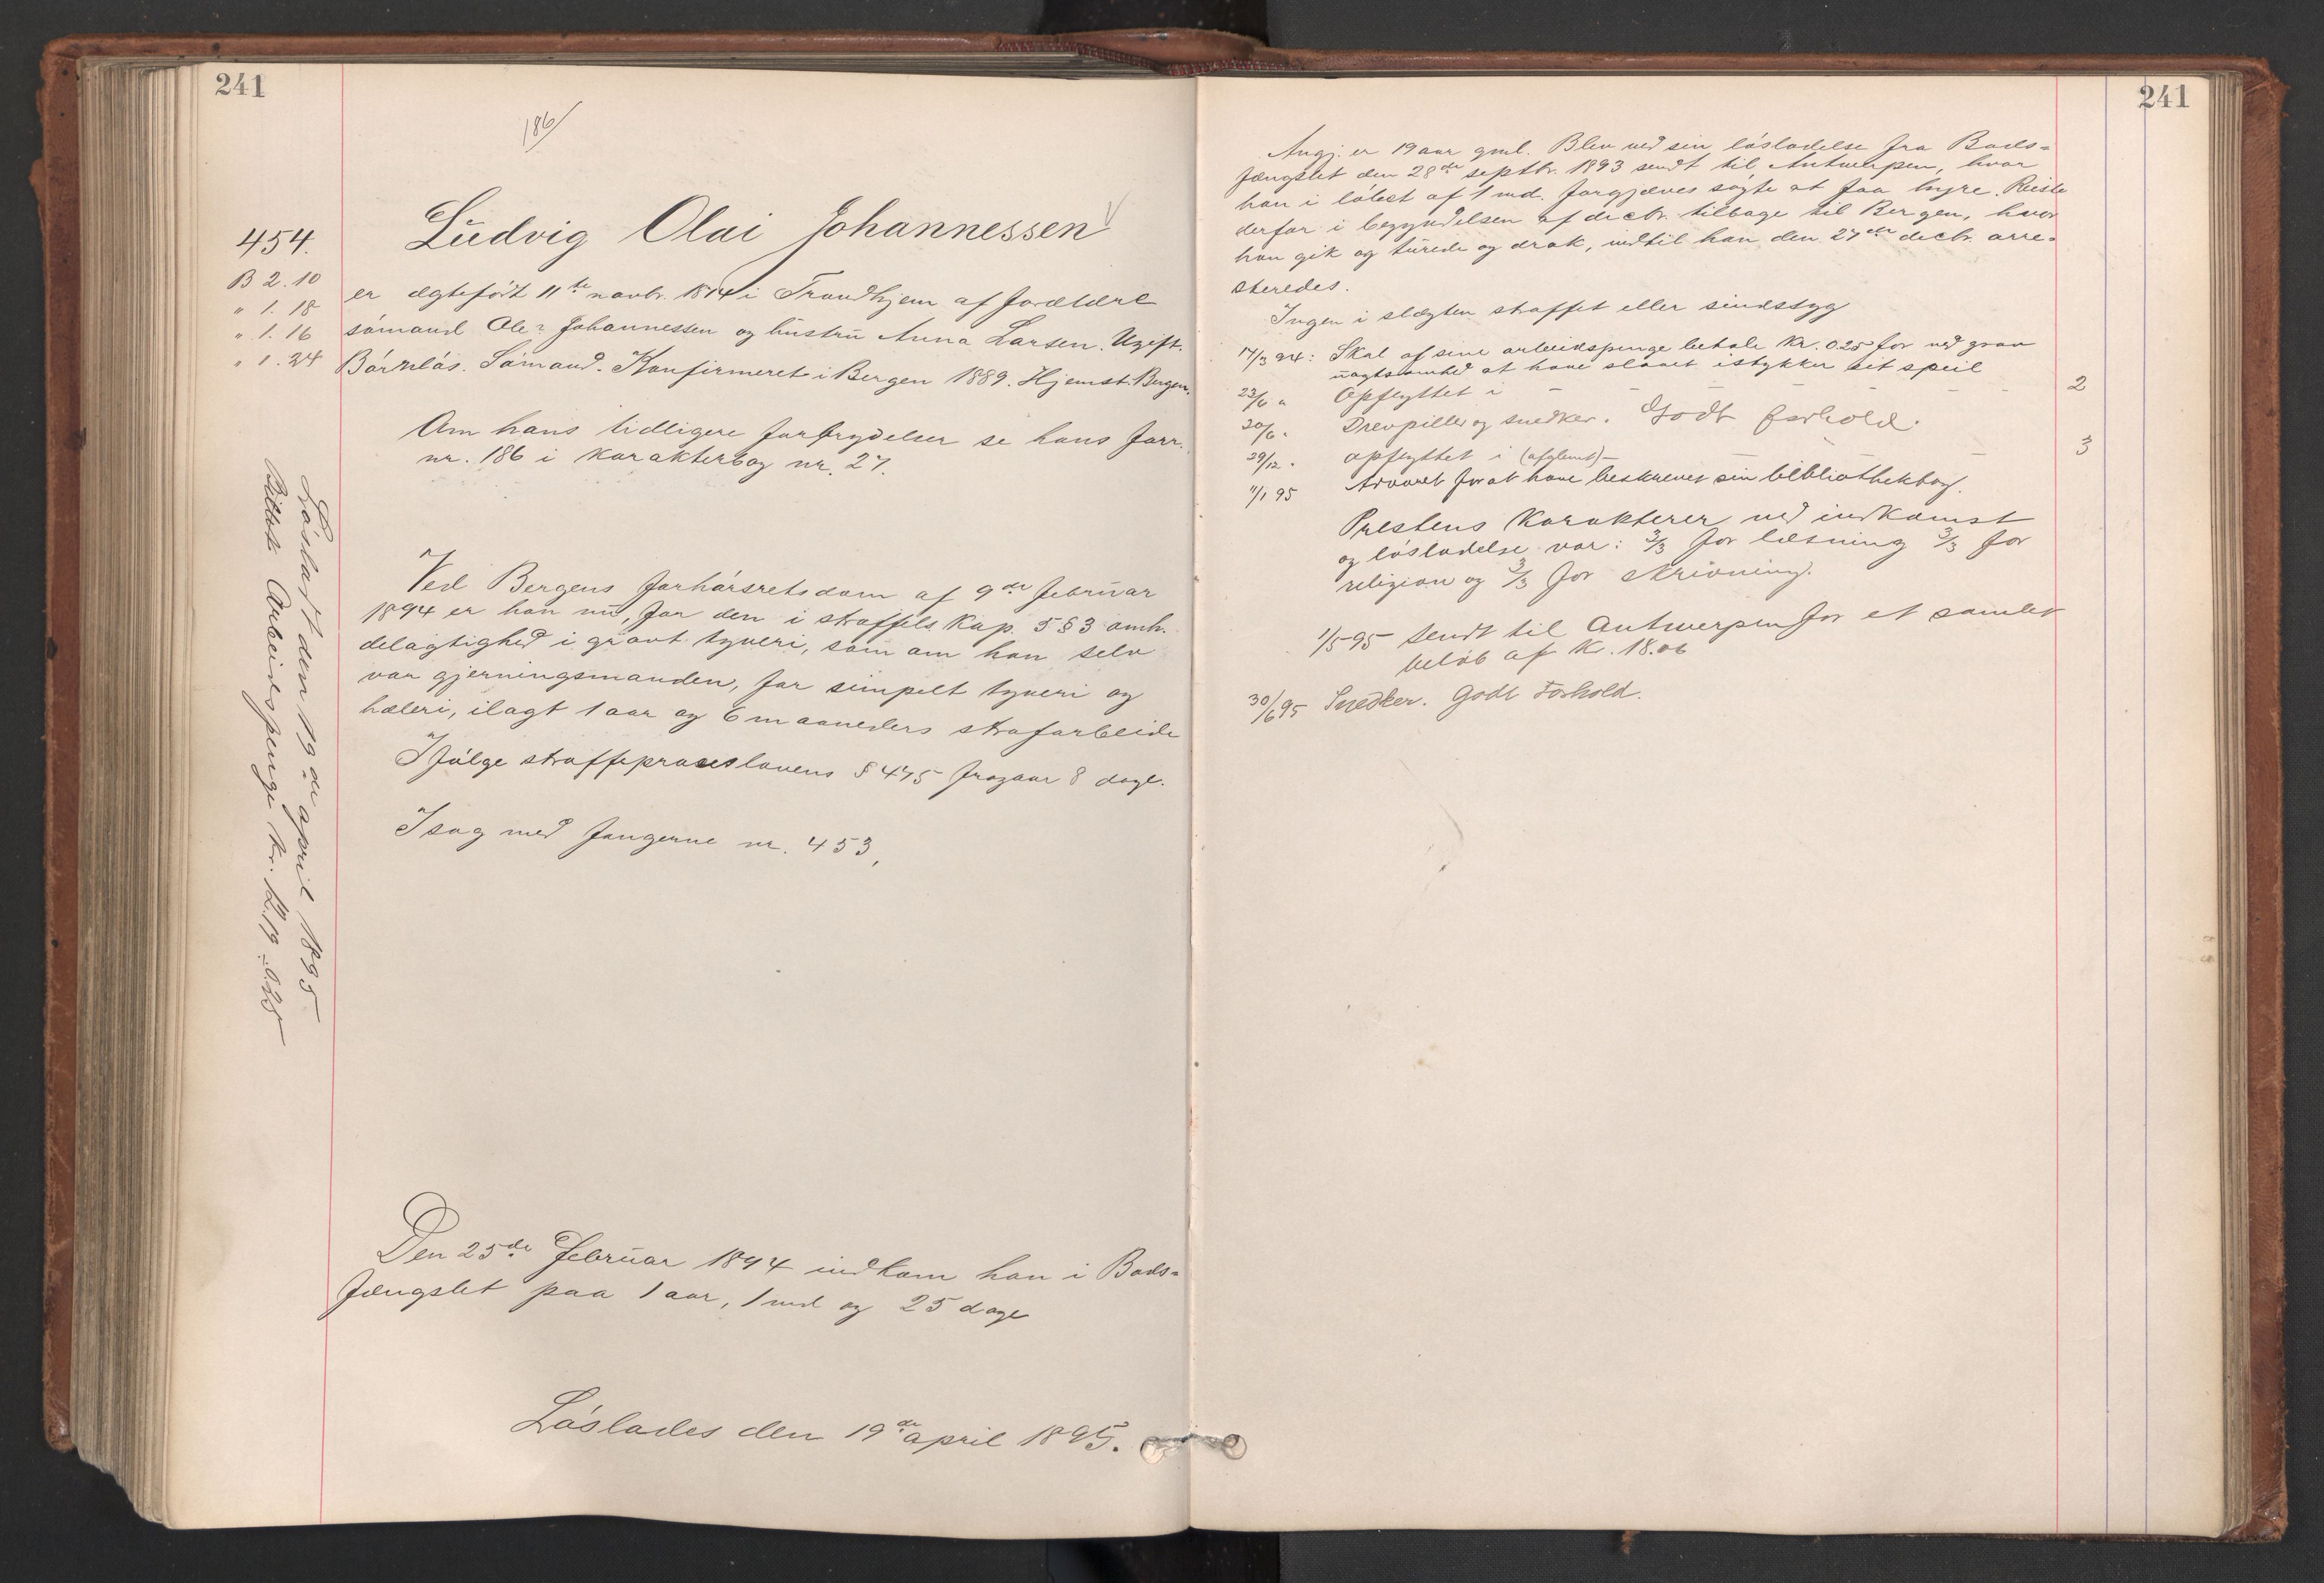 241
186/
454.
Ludvig Olai Johannessen
B 2.10
" 1. 18
" 1. 16
" 1. 24
er ægtefödt 11te novbr. 1874 i Trondhjem af forældre
sömand Ole Johannessen og hustru Anna Larsen. Ugift.
Börnlös. Sömand. Konfirmeret i Bergen 1889. Hjemst. Bergen.
Om hans tidligere forbrydelser se hans forr.
nr. 186 i karakterbog nr. 27.
Ved Bergens forhörsretsdom af 9de februar
1894 er han nu, for den i straffels kap. 5 § 3 omh.
delagtighed i grovt tyveri, som om han selv
var gjerningsmanden, for simpelt tyveri og
hæleri, ilagt 1 aar og 6 maaneders strafarbeide
Ifölge straffeproceslovens § 475 fragaar 8 dage.
I sag med fangerne nr. 453,
Den 25de februar 1894 indkom han i Bods-
fængslet paa 1 aar, 1 md og 25 dage
Löslades den 19de april 1895.
Lösladt den 19de april 1895
Arbeidspenge kr. 12.19 ÷ 0.25
241
Angj. er 19 aar gml. Blev ved sin lösladelse fra Bods-
fængslet den 28de septbr. 1893 sendt til Antwerpen, hvor
han i löbet af 1 md. forgjæves sögte at faa hyre. Reiste
derfor i begyndelsen af decbr. tilbage til Bergen, hvor
han gik og turede og drak, indtil han den 27de decbr. arre-
steredes.
Ingen i slægten straffet eller sindssyg
17/3 94: Skal af sine arbeidspenge betale Kr. 0.25 for ved grov
uagtsomhed at have slaaet istykker sit speil
23/6 " Opflyttet i — — — — 2
30/6 " Drevpiller og snedker. Godt forhold.
29/12 " opflyttet i (afglemt) — — — 3
11/1 95 Advaret for at have beskrevet sin bibliothekbog.
Prestens karakterer ved indkomst
og lösladelse var: 3/3 for læsning 3/3 for
religion og 3/3 for skrivning.
1/5 95 Sendt til Antwerpen for et samlet
belöb af Kr. 18.06
30/6 95 Snedker. Godt Forhold.